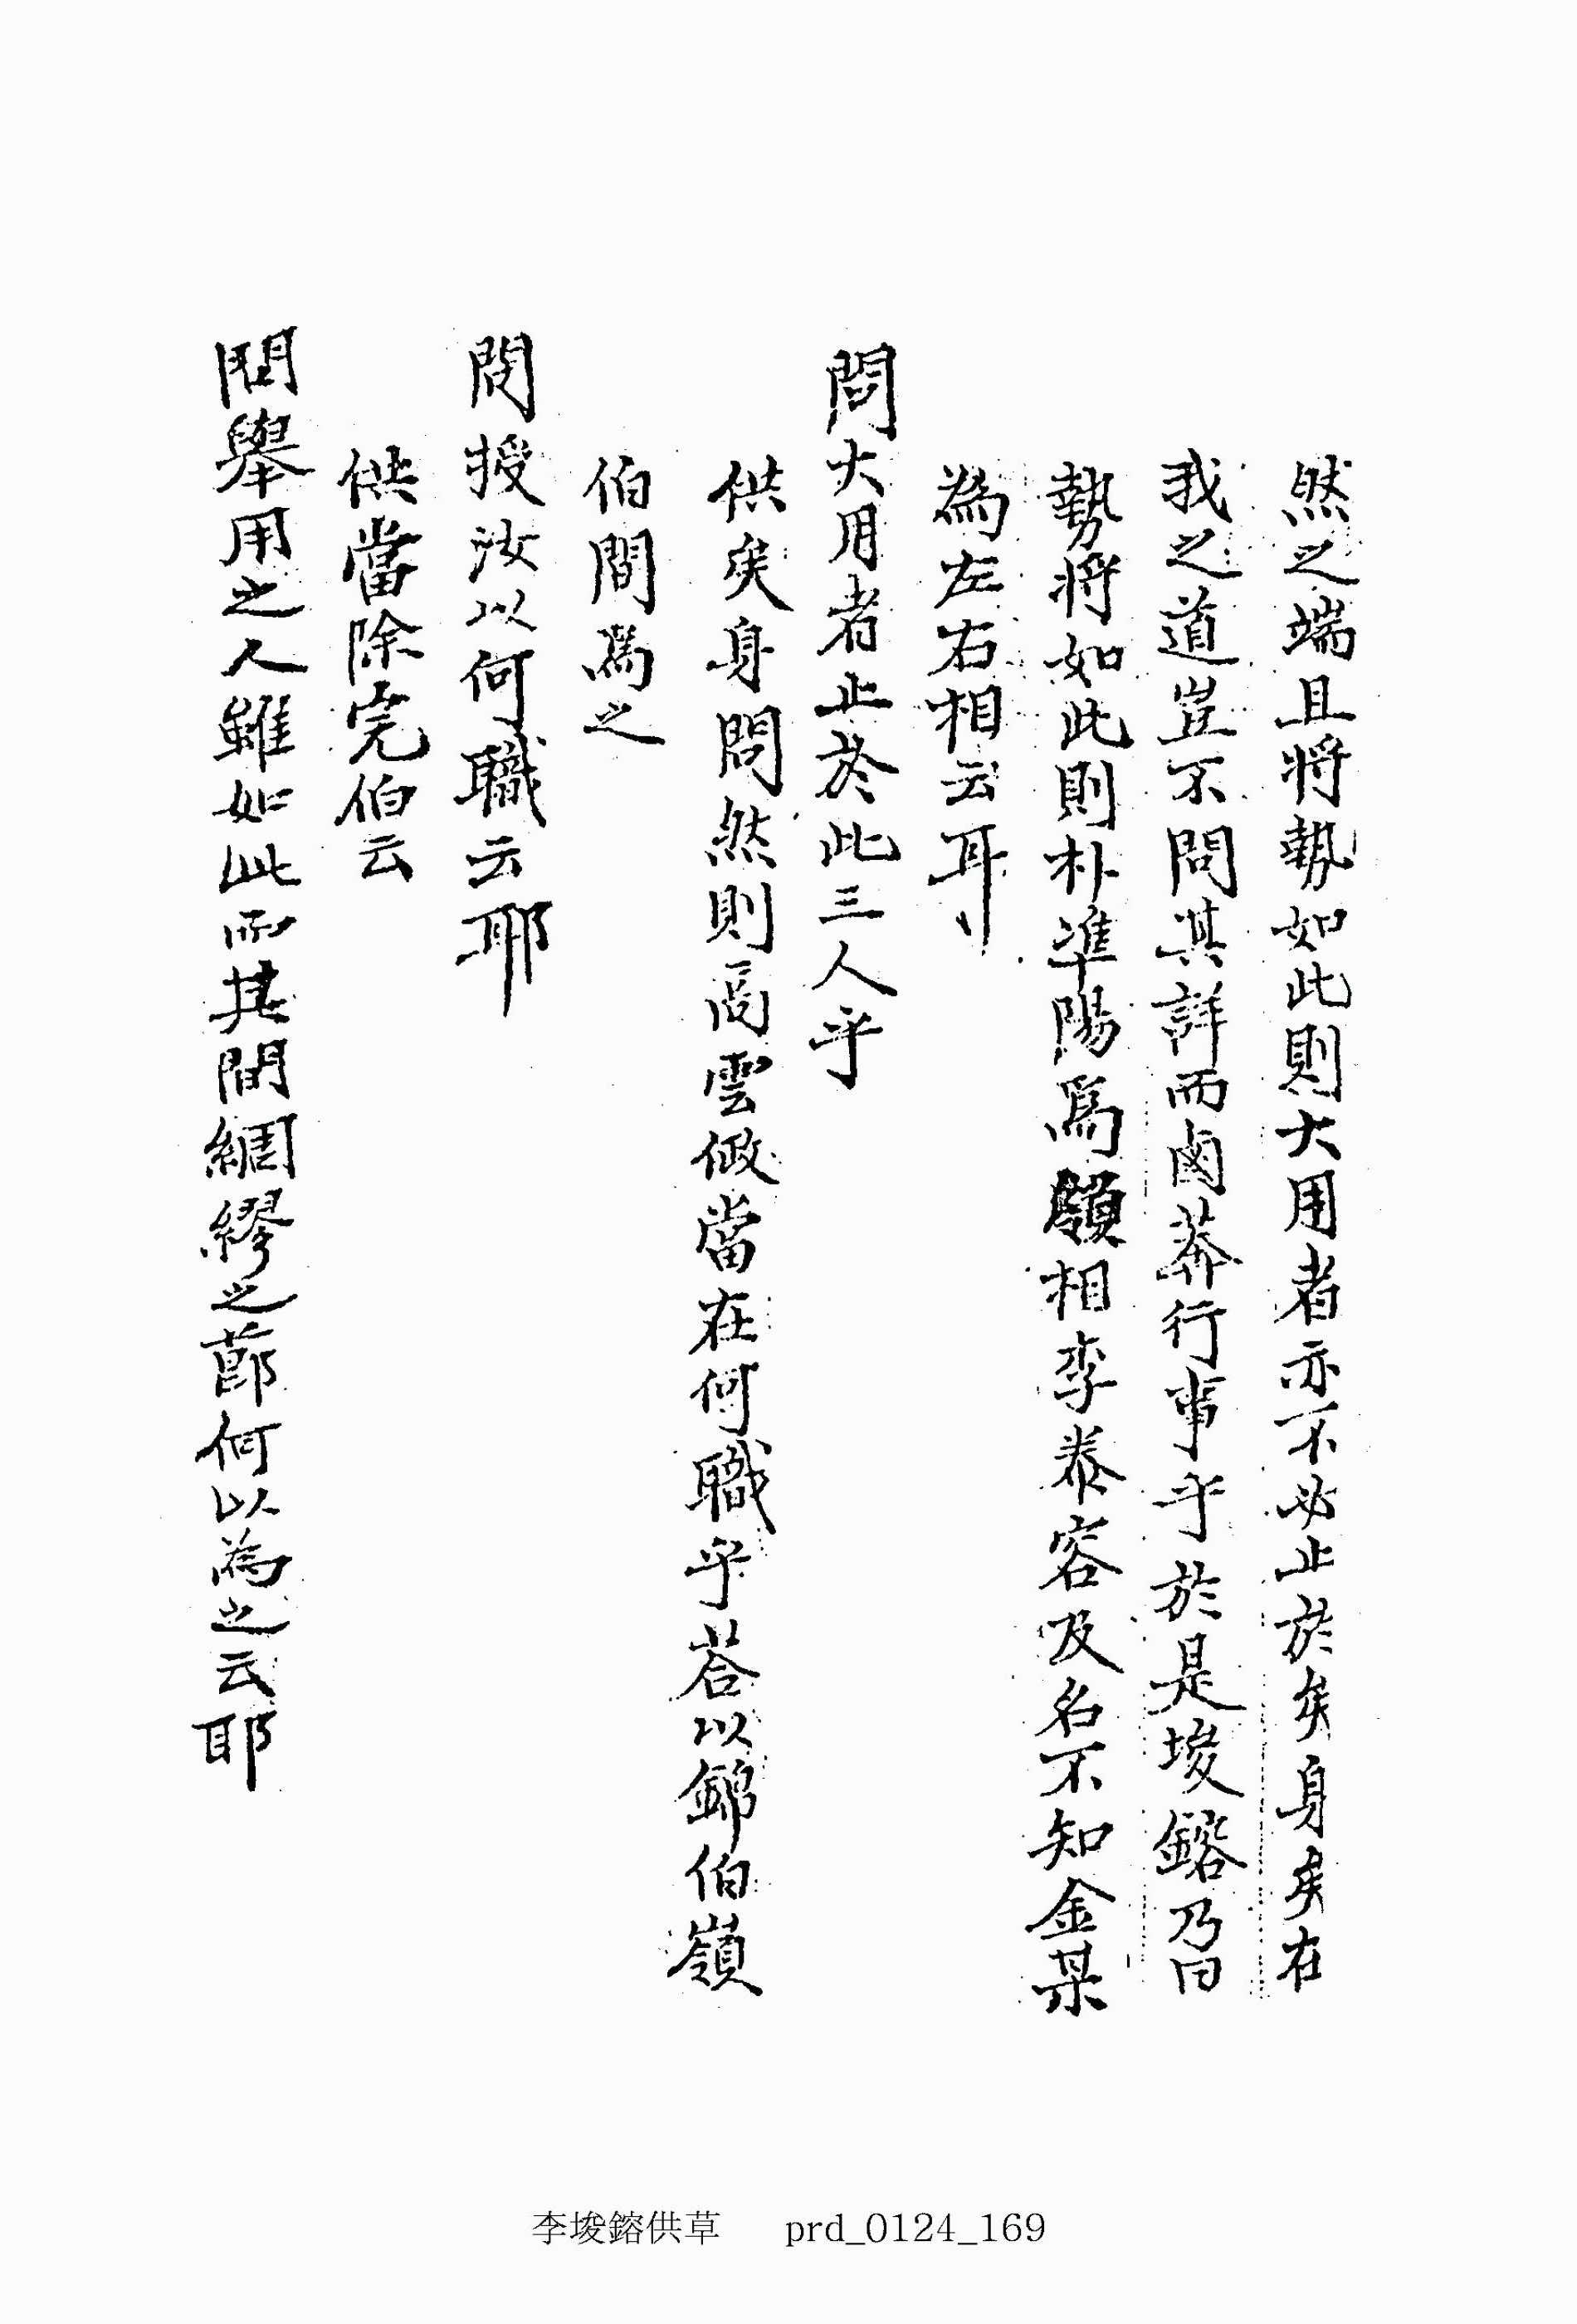 然之端且將勢如此則大用者亦不必止於矣身矣在
我之道豈不問其詳而鹵莽行事乎於是埈鎔乃曰
勢將如此則朴準陽爲領相李泰容及名不知金某
爲左右相云耳
問大用者止於此三人乎
供矣身問然則高雲儆當在何職乎荅以錦伯嶺
伯間爲之
問授汝以何職云耶
供當除完伯云
問擧用之人雖如此而其間綢繆之節何以爲之云耶
李埈鎔供草 prd_0124_169